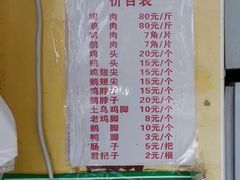 价目表
鸡 肉 80元/斤
鹅 肉 80元/斤
鸡 肉 7角/片
鹅 肉 7角/片
鸡 头 20元/个
鹅 头 15元/个
鸡翅尖 15元/个
鹅翅尖 15元/个
鸡脖子 15元/个
鹅脖子 20元/个
土乌鸡脚 10元/个
老鸡脚 8元/个
鹅 脚 10元/个
鸭 脚 3元/个
肠 子 5元/把
君把子 2元/根